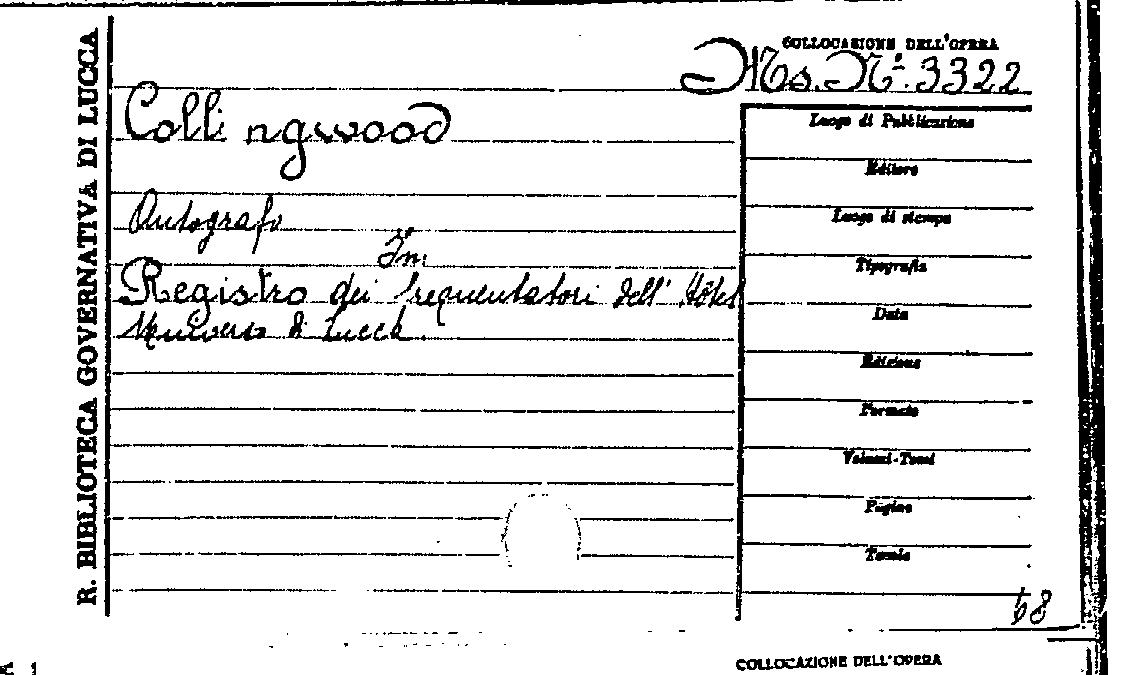 R. BIBLIOTECA GOVERNATIVA DI LUCCA
COLLOCAZIONE DELL'OPERA
Ms. N.º 3322
Collingwood
Autografo
In
Registro dei frequentatori dell' Hôtel
Universo di Lucca.
Luogo di Pubblicazione
Editore
Luogo di stampa
Tipografia
Data
Edizione
Formato
Volumi-Tomi
Pagine
Tomio
68
COLLOCAZIONE DELL'OPERA